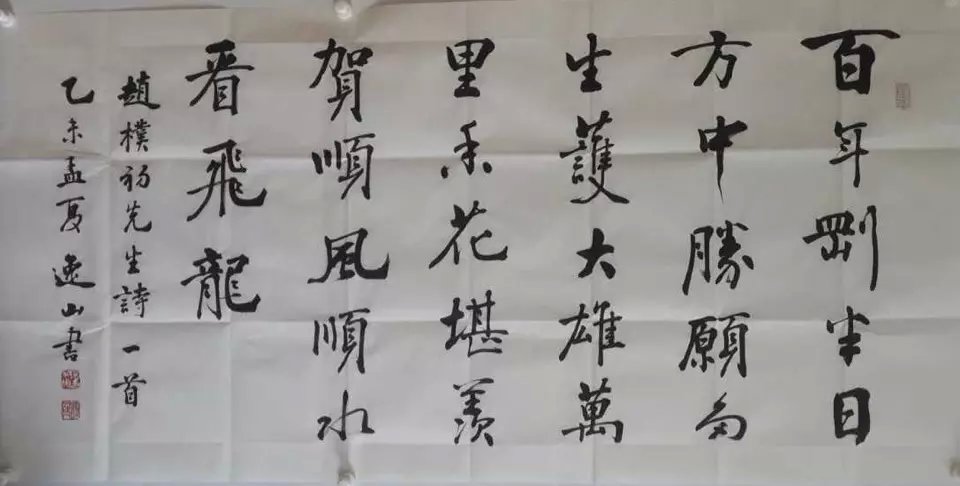 百年剛半日
方中勝願多
生護大雄萬
里香花堪羨
賀順風順水
看飛龍
趙樸初先生詩一首
乙未孟夏逸山書